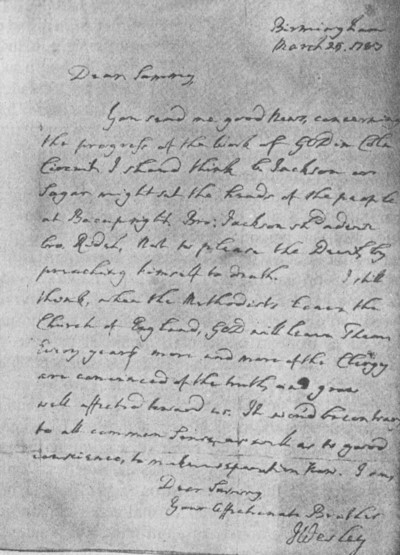 Birmingham
March 25. 1787
Dear Sammy
You send me good News, concerning
the progress of the work of GOD in Coln
Circuit. I should think B. Jackson or
Sugar might set the heads of the people
at Bacup right. Bro: Jackson shd advise
bro. Ridel, Not to please the Devil, by
preaching himself to death. I still
think, when the Methodists leave the
Church of England, GOD will leave Them.
Every year more and more of the Clergy
are convinced of the truth, and grow
well affected toward us. It would be contrary
to all common Sense, as well as to good
conscience, to make a separation now. I am,
Dear Sammy,
Your Affectionate Brother
J Wesley